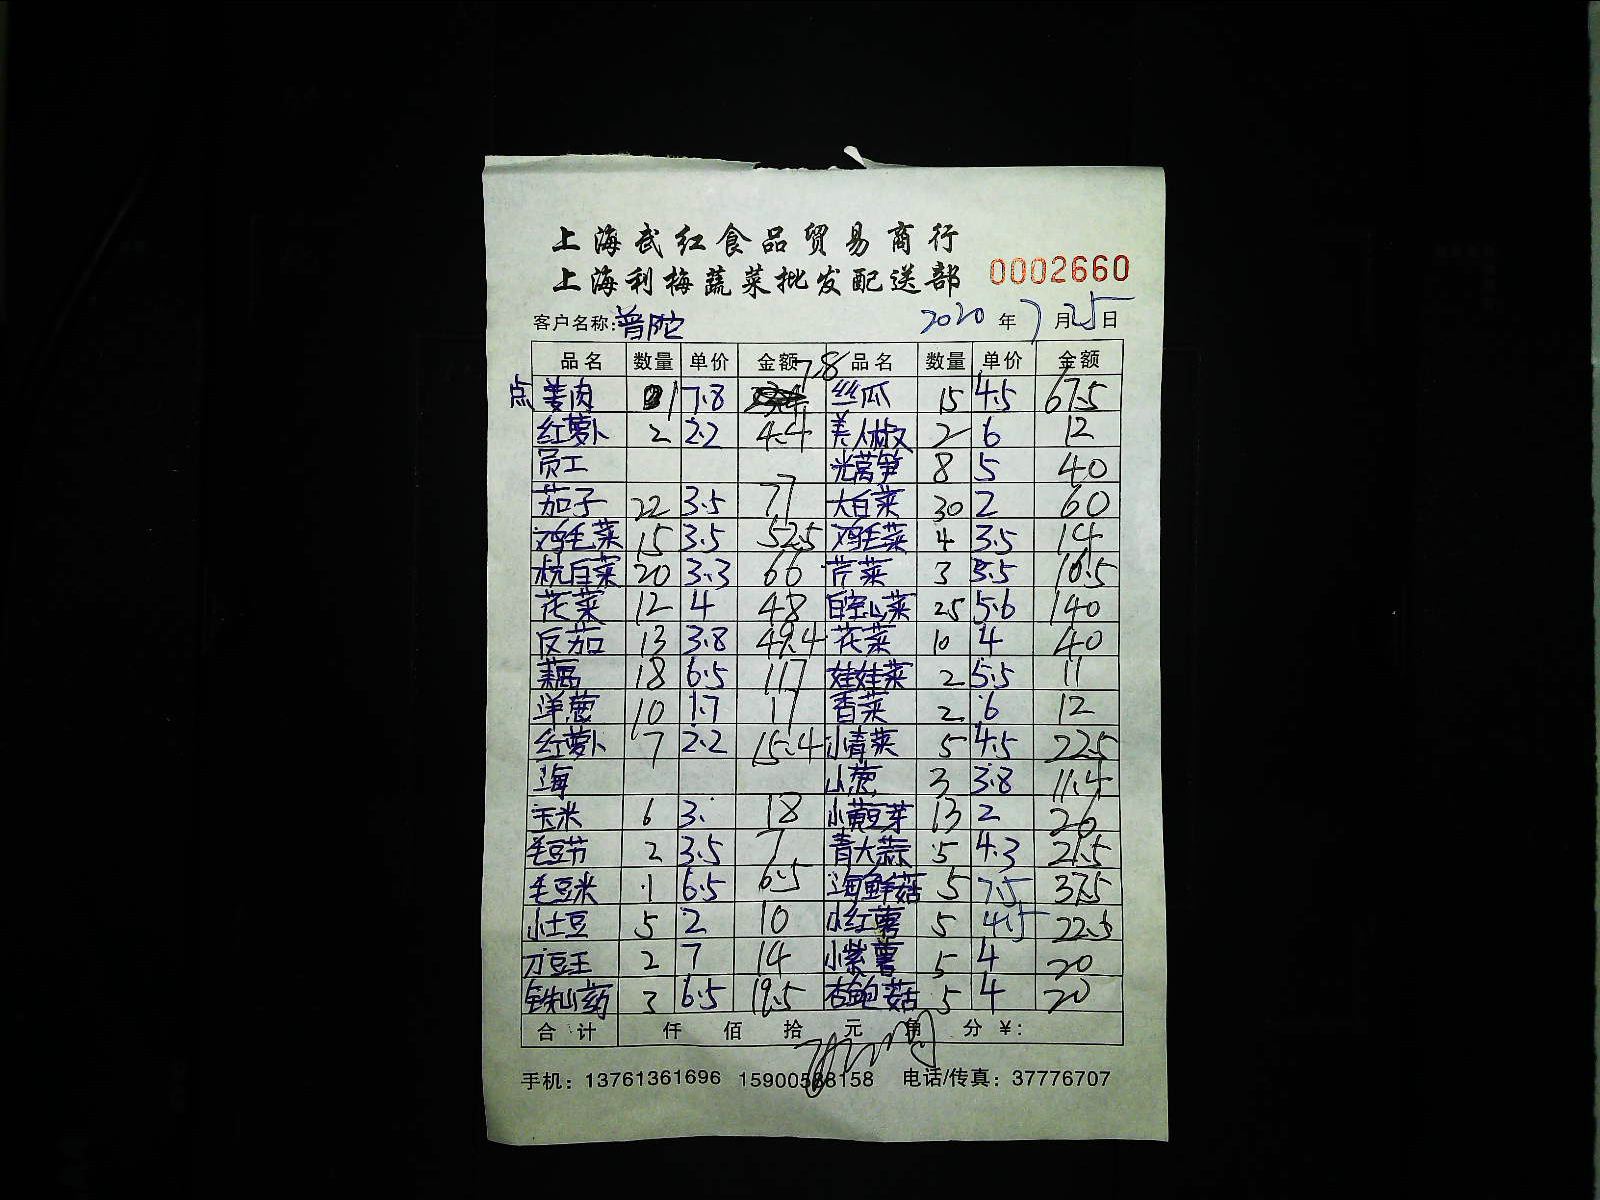 上海武红食品贸易商行
上海利梅蔬菜批发配送部 0002660
客户名称:普陀 2020年7月25日
品名 数量 单价 金额 品名 数量 单价 金额
点 姜肉 1 7.8 7.8 丝瓜 15 4.5 67.5
红萝卜 2 2.2 4.4 美人椒 2 6 12
员工 光莴笋 8 5 40
茄子 22 3.5 77 大白菜 30 2 60
鸡毛菜 15 3.5 52.5 鸡毛菜 4 3.5 14
杭白菜 20 3.3 66 芹菜 3 5.5 16.5
花菜 12 4 48 白空心菜 25 5.6 140
反茄 13 3.8 49.4 花菜 10 4 40
藕 18 6.5 117 娃娃菜 2 5.5 11
洋葱 10 1.7 17 香菜 2 6 12
红萝卜 7 2.2 15.4 小青菜 5 4.5 22.5
上海 小葱 3 3.8 11.4
玉米 6 3 18 小黄豆芽 13 2 26
毛豆节 2 3.5 7 青大蒜 5 4.3 21.5
毛豆米 1 6.5 6.5 海鲜菇 5 7.5 37.5
小土豆 5 2 10 小红薯 5 4.5 22.5
刀豆王 2 7 14 小紫薯 5 4 20
铁山药 3 6.5 19.5 杏鲍菇 5 4 20
合计 仟 佰 拾 元 角 分 ¥:
手机:13761361696 15900568158 电话/传真:37776707